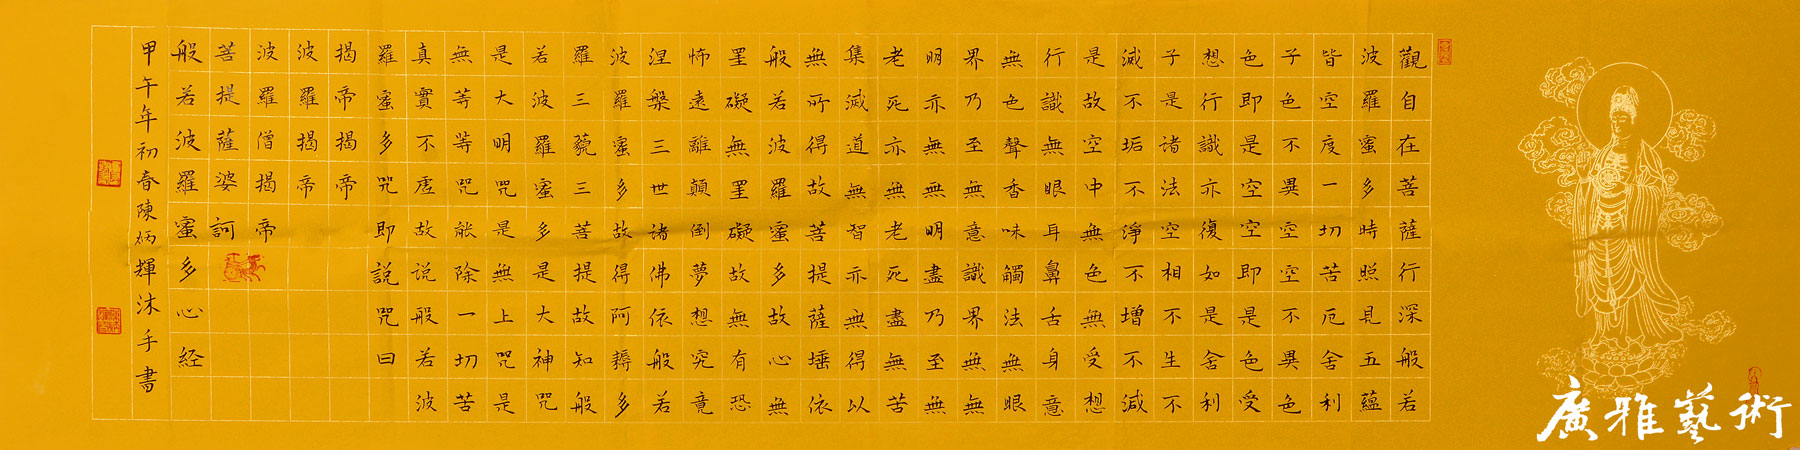 觀自在菩薩行深般若
波羅蜜多時照見五蘊
皆空度一切苦厄舍利
子色不異空空不異色
色即是空空即是色受
想行識亦復如是舍利
子是諸法空相不生不
滅不垢不淨不增不減
是故空中無色無受想
行識無眼耳鼻舌身意
無色聲香味觸法無眼
界乃至無意識界無無
明亦無無明盡乃至無
老死亦無老死盡無苦
集滅道無智亦無得以
無所得故菩提薩埵依
般若波羅蜜多故心無
罣礙無罣礙故無有恐
怖遠離顛倒夢想究竟
涅槃三世諸佛依般若
波羅蜜多故得阿耨多
羅三藐三菩提故知般
若波羅蜜多是大神咒
是大明咒是無上咒是
無等等咒能除一切苦
真實不虛故說般若波
羅蜜多咒即說咒曰
揭帝揭帝
波羅揭帝
波羅僧揭帝
菩提薩婆訶
般若波羅蜜多心経
甲午年初春陳炳輝沐手書
廣雅藝術